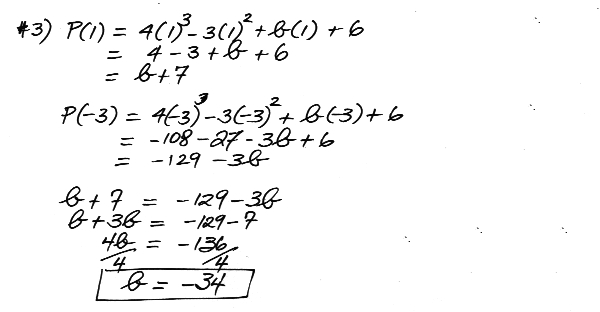 #3) P(1) = 4(1)³ - 3(1)² + b(1) + 6
= 4 - 3 + b + 6
= b + 7
P(-3) = 4(-3)³ - 3(-3)² + b(-3) + 6
= -108 - 27 - 3b + 6
= -129 - 3b
b + 7 = -129 - 3b
b + 3b = -129 - 7
4b/4 = -136/4
b = -34